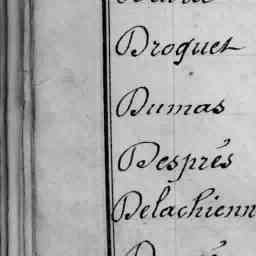 Droguet
Dumas
Després
Delachienn